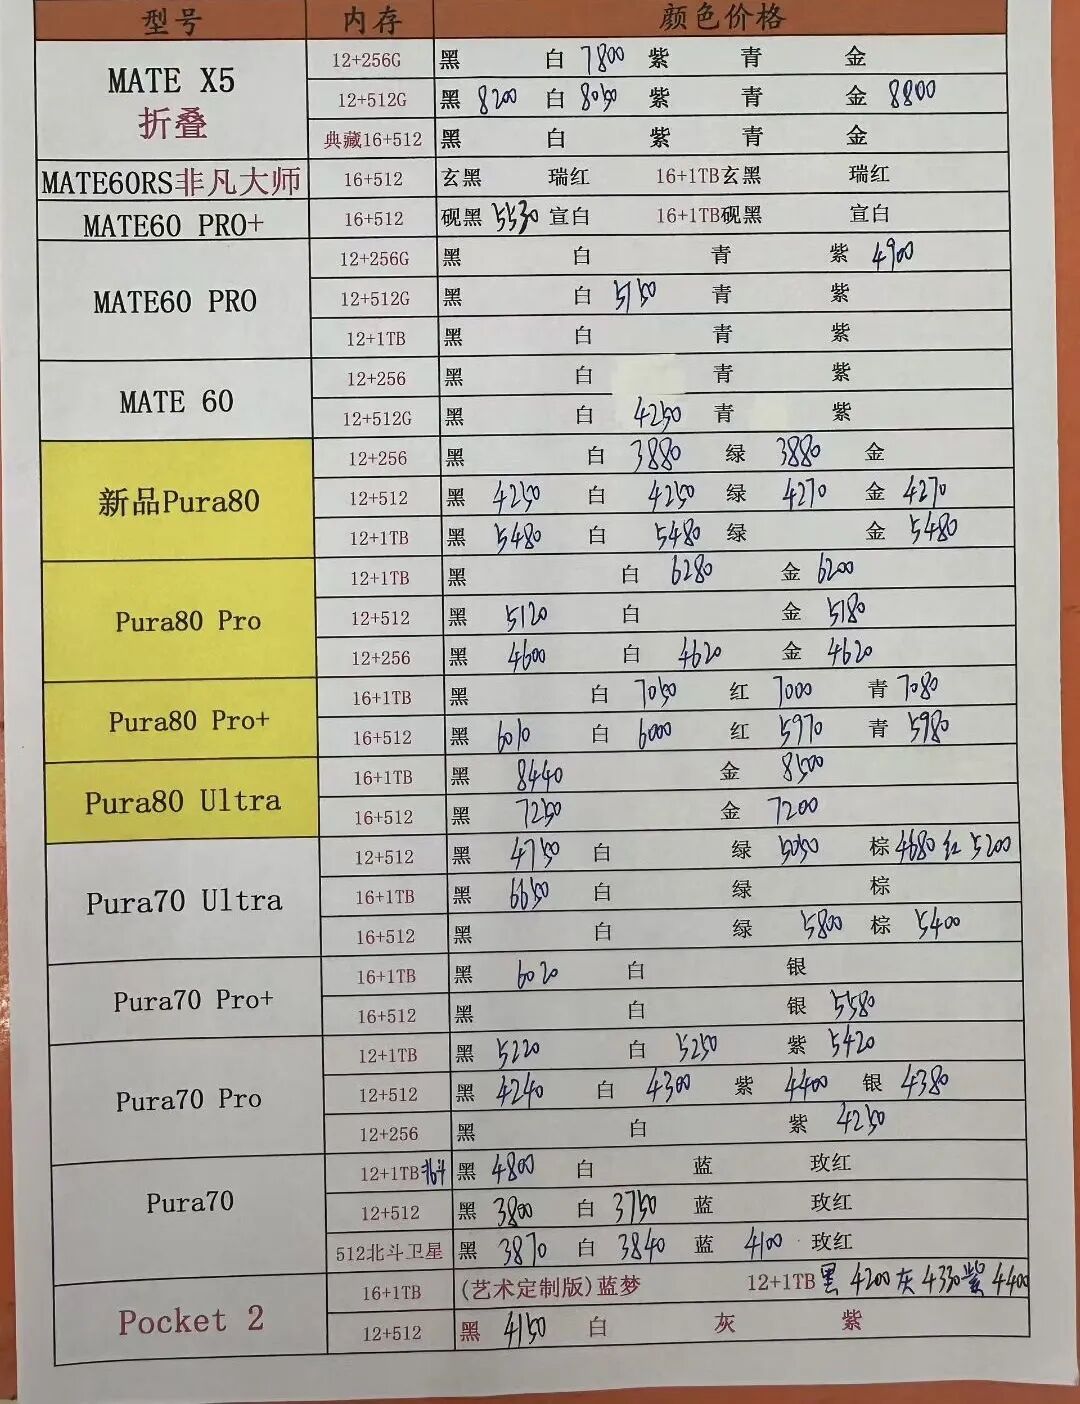 型号 内存 颜色价格
MATE X5 折叠
12+256G 黑 白 7800 紫 青 金
12+512G 黑 8200 白 8050 紫 青 金 8800
典藏16+512 黑 白 紫 青 金
MATE60RS非凡大师 16+512 玄黑 瑞红 16+1TB玄黑 瑞红
MATE60 PRO+ 16+512 砚黑 5530 宣白 16+1TB砚黑 宣白
MATE60 PRO
12+256G 黑 白 青 紫 4900
12+512G 黑 白 5150 青 紫
12+1TB 黑 白 青 紫
MATE 60
12+256 黑 白 青 紫
12+512G 黑 白 4250 青 紫
新品Pura80
12+256 黑 白 3880 绿 3880 金
12+512 黑 4250 白 4250 绿 4270 金 4270
12+1TB 黑 5480 白 5480 绿 金 5480
Pura80 Pro
12+1TB 黑 白 6280 金 6200
12+512 黑 5120 白 金 5180
12+256 黑 4600 白 4620 金 4620
Pura80 Pro+
16+1TB 黑 白 7050 红 7000 青 7080
16+512 黑 6010 白 6000 红 5970 青 5980
Pura80 Ultra
16+1TB 黑 8440 金 8500
16+512 黑 7250 金 7200
Pura70 Ultra
12+512 黑 4750 白 绿 5050 棕 4680 红 5200
16+1TB 黑 6650 白 绿 棕
16+512 黑 白 绿 5800 棕 5400
Pura70 Pro+
16+1TB 黑 6020 白 银
16+512 黑 白 银 5580
Pura70 Pro
12+1TB 黑 5220 白 5250 紫 5420
12+512 黑 4240 白 4300 紫 4400 银 4380
12+256 黑 白 紫 4250
Pura70
12+1TB北斗 黑 4800 白 蓝 玫红
12+512 黑 3800 白 3750 蓝 玫红
512北斗卫星 黑 3870 白 3840 蓝 4100 玫红
Pocket 2
16+1TB (艺术定制版)蓝梦 12+1TB 黑 4200 灰 4330 紫 4400
12+512 黑 4150 白 灰 紫